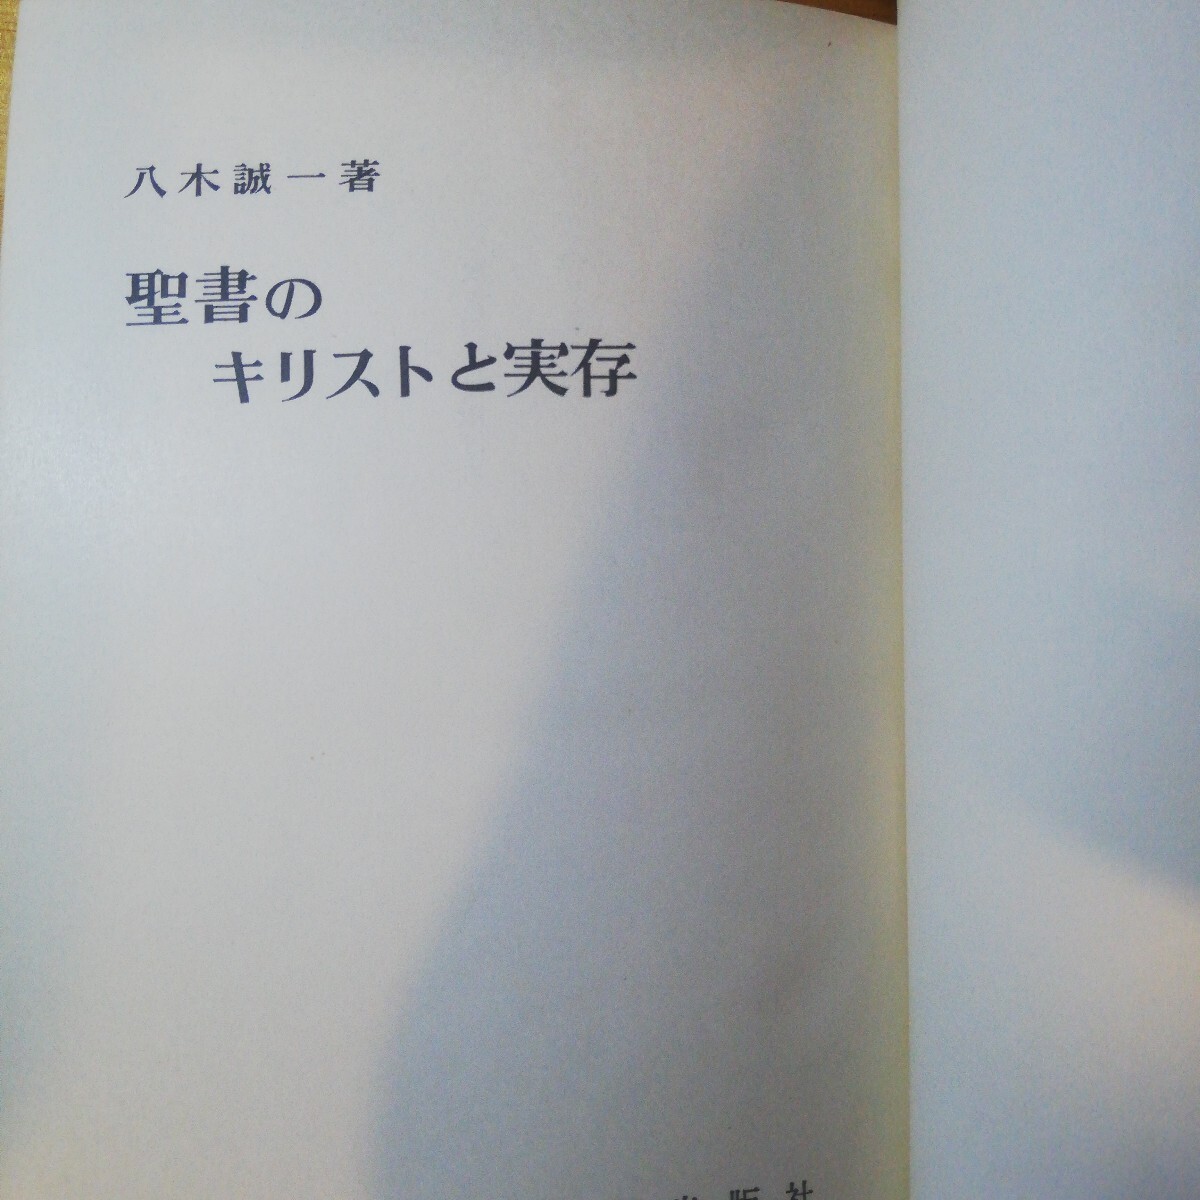 八木誠一著
聖書の
キリストと実存
出版社